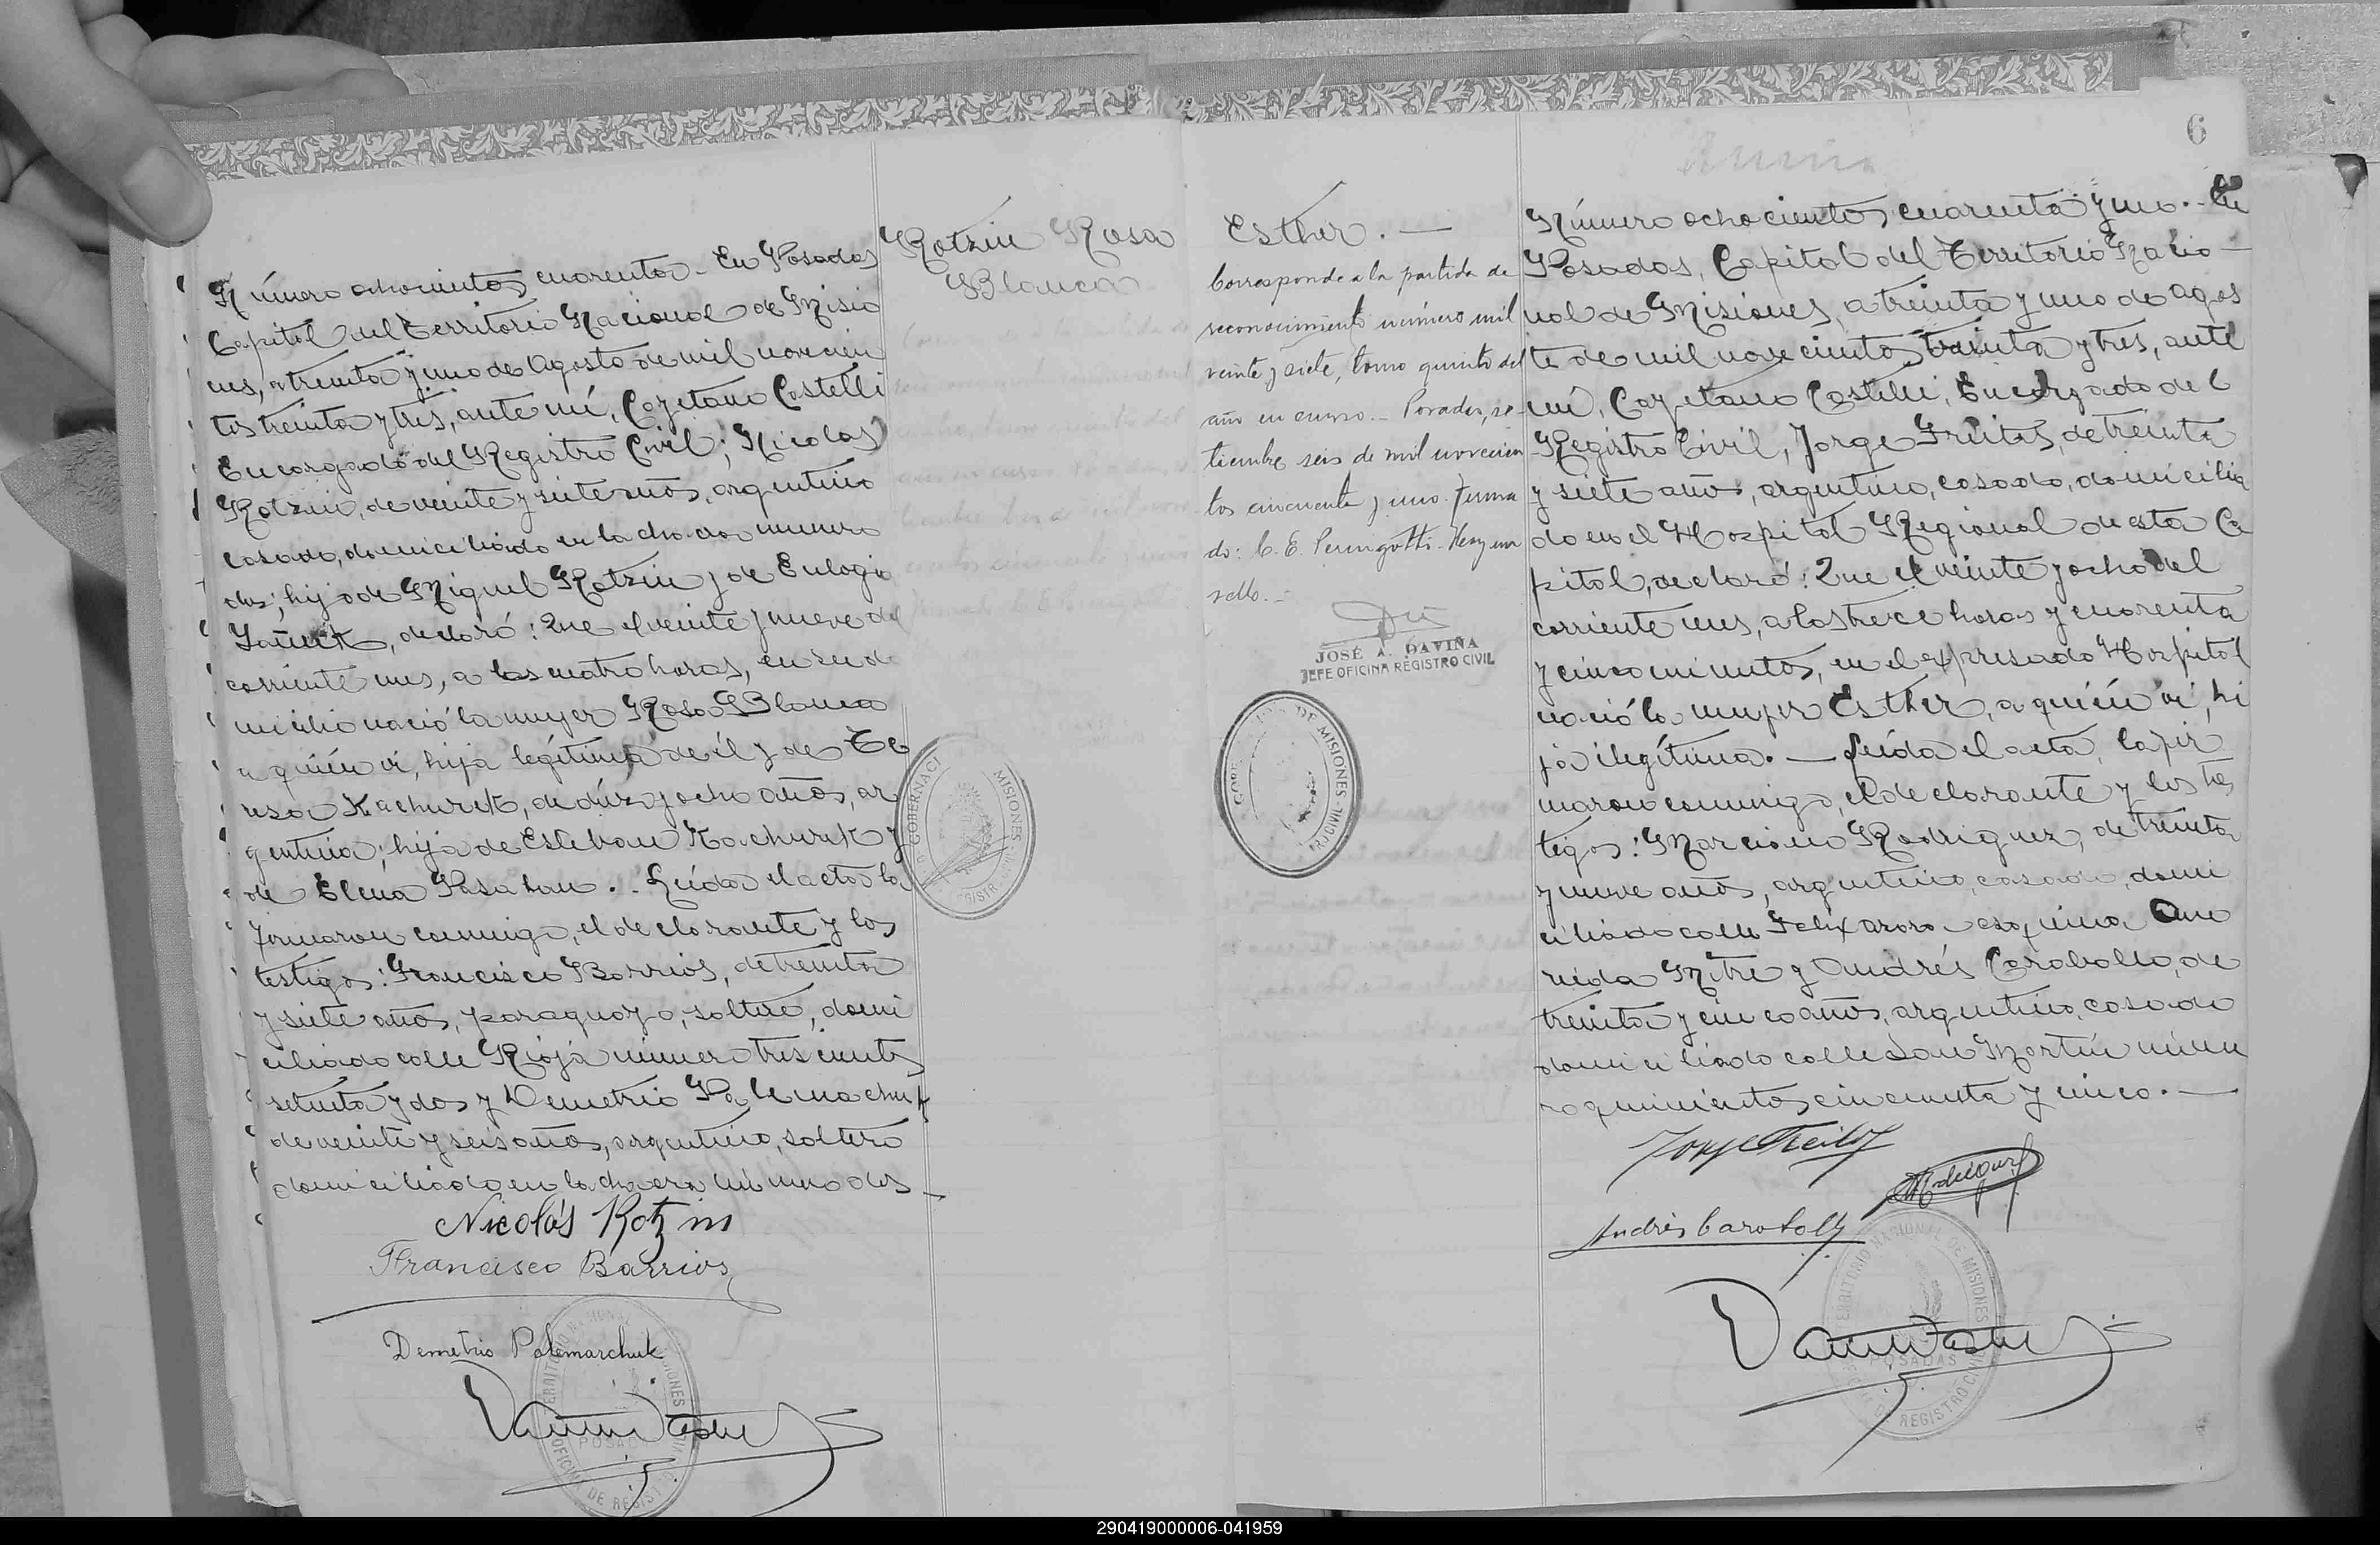 Número ochocientos cuarenta. En Posadas
Capital del Territorio Nacional de Misio
nes, a treinta y uno de Agosto de mil novecien
tos treinta y tres, ante mí, Cayetano Castelli
Encargado del Registro Civil; Nicolas
Rotzin, de veinte y siete años, argentino
casado, domiciliado en la chacra numero
dos; hijo de Miguel Rotzin y de Eulogia
declaró: Que el veinte y nueve del
corriente mes, a las cuatro horas, en su do
micilio nació la mujer Rosa Blanca
a quién ví, hija legítima de él y de Te
resa Kachurek, de diez y ocho años, ar
gentina; hija de Esteban Kachurek y
de Elena . Leída el acta la
firmaron conmigo, el declarante y los
testigos: Francisco Barrios, de treinta
y siete años, paraguayo, soltero, domi
ciliado calle Rioja número trescientos
setenta y dos y Demetrio Palemachuk
de veinte y seis años, argentino, soltero
domiciliado en la chacra número dos
Nicolás Rotzin
Francisco Barrios
Demetrio Palemarchuk
TERRITORIO NACIONAL DE MISIONES
POSADAS
OFICINA DE REGISTRO CIVIL
Rotzin Rosa
Blanca
GOBERNACI MISIONES
Esther. —
Corresponde a la partida de
reconocimiento número mil
veinte y siete, tomo quinto del
año en curso. – Posadas, se-
tiembre seis de mil novecien
tos cincuenta y uno. Firma
do: C. E. Perngotti. Hay un
sello. –
JOSÉ A. DAVIÑA
JEFE OFICINA REGISTRO CIVIL
DE MISIONES
6
Número ochocientos cuarenta y uno. - En
Posadas, Capital del Territorio Nacio—
nal de Misiones, a treinta y uno de agos
to de mil novecientos treinta y tres, ante
mí, Cayetano Castelli, Encargado del
Registro Civil, Jorge Freitas, de treinta
y siete años, argentino, casado, domicilia
do en el Hospital Regional de esta Ca
pital, declaró: Que el veinte y ocho del
corriente mes, a las trece horas y cuarenta
y cinco minutos, en el expresado Hospital
nació la mujer Esther, a quién ví, hi
ja ilegítima. — Leída el acta, la fir
maron conmigo, el declarante y los tes
tigos: Marciano Rodriguez, de treinta
y nueve años, argentino, casado, domi
ciliado calle Felix Azara esquina Ave
nida Mitre y Andrés Caraballo, de
treinta y cinco años, argentino, casado
domiciliado calle San Martín núme
ro quinientos cincuenta y cinco. —
Jorge Freitas
Andrés Caraballo
TERRITORIO NACIONAL DE MISIONES
POSADAS
REGISTRO CIVIL
290419000006-041959